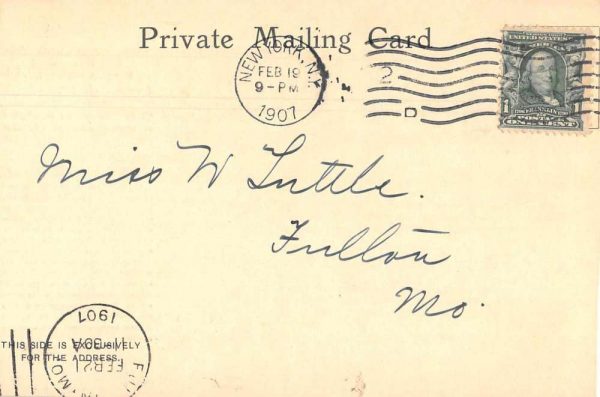 Private Mailing Card
NEW YORK, N.Y.
FEB 19
9-PM
1907
2
D
UNITED STATES
1 1
POSTAGE
ONE CENT
Miss W Tuttle.
Fulton
Mo.
THIS SIDE IS EXCLUSIVELY
FOR THE ADDRESS.
FEB 21
1907
MO.